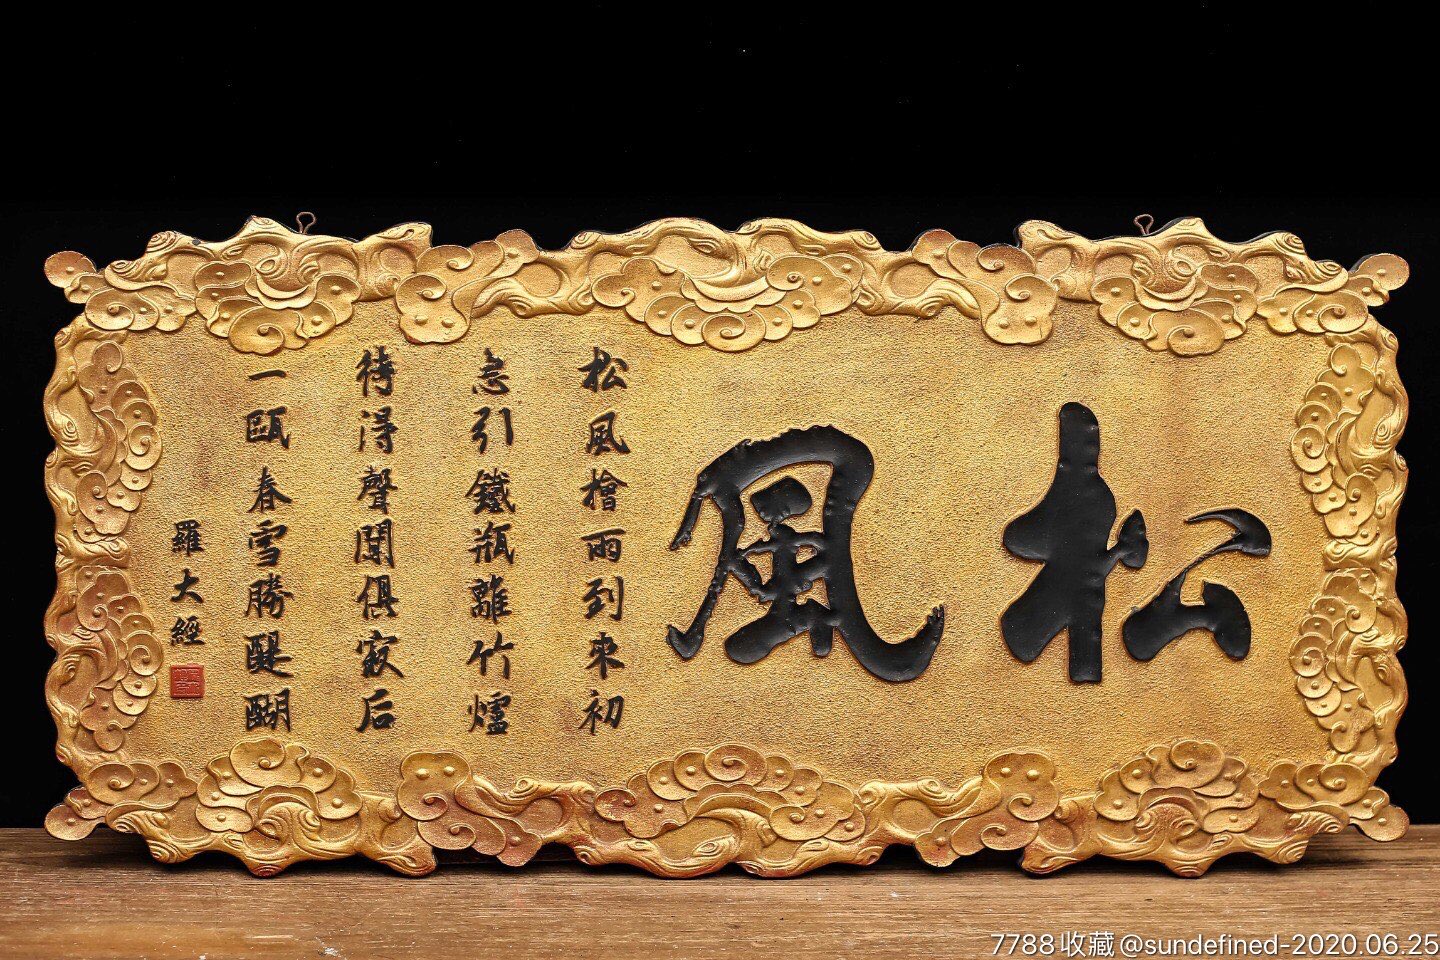 松風
松風檜雨到来初
急引鐵瓶離竹爐
待得聲聞俱寂后
一甌春雪勝醍醐
羅大經
7788收藏@sundefined-2020.06.25